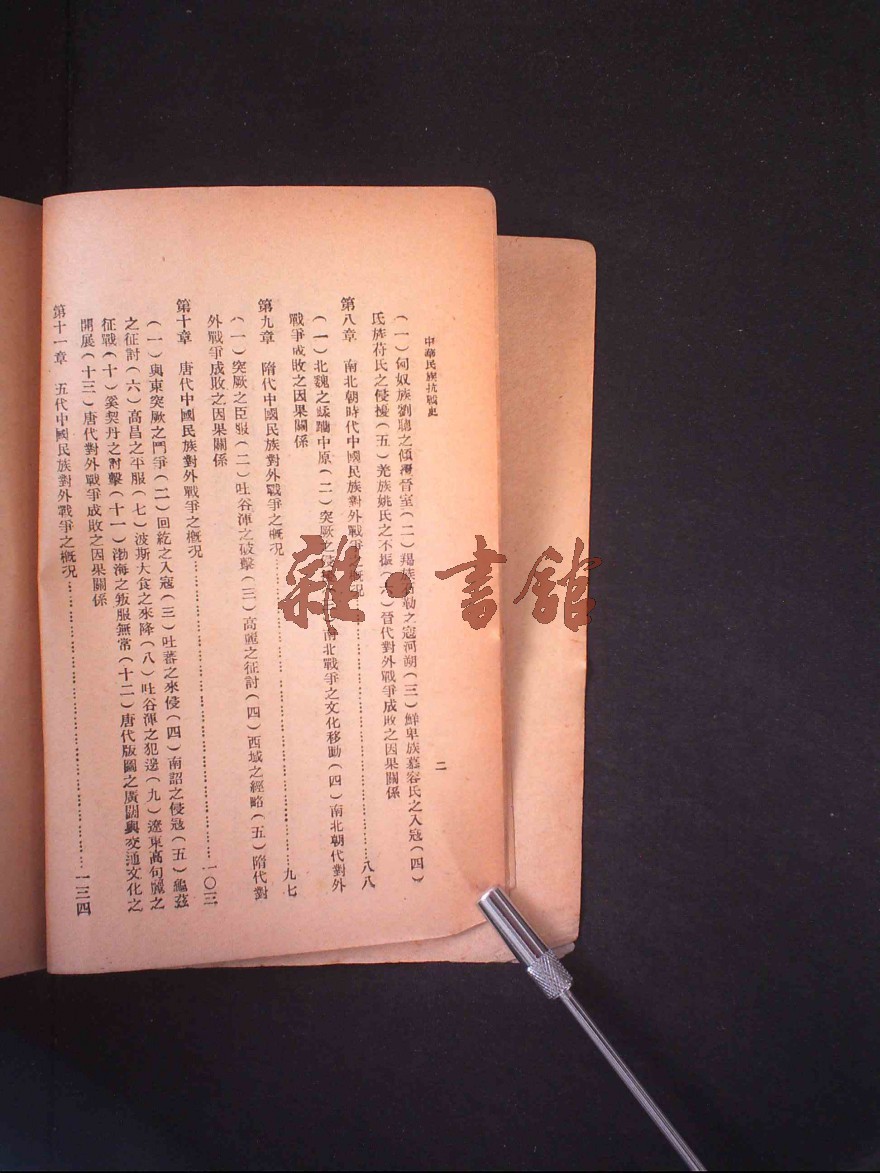 中華民族抗戰史
二
(一)匈奴族劉聰之傾覆晉室(二)羯族石勒之寇河朔(三)鮮卑族慕容氏之入寇(四)
氐族苻氏之侵擾(五)羌族姚氏之不振(六)晉代對外戰爭成敗之因果關係
第八章 南北朝時代中國民族對外戰爭之概況……八八
(一)北魏之蹂躪中原(二)突厥之侵 南北戰爭之文化移動(四)南北朝代對外
戰爭成敗之因果關係
第九章 隋代中國民族對外戰爭之概況……九七
(一)突厥之臣服(二)吐谷渾之破擊(三)高麗之征討(四)西域之經略(五)隋代對
外戰爭成敗之因果關係
第十章 唐代中國民族對外戰爭之概況……一〇三
(一)與東突厥之鬥爭(二)回紇之入寇(三)吐蕃之來侵(四)南詔之侵寇(五)龜茲
之征討(六)高昌之平服(七)波斯大食之來降(八)吐谷渾之犯邊(九)遼東高句麗之
征戰(十)奚契丹之討擊(十一)渤海之叛服無常(十二)唐代版圖之廣闊與交通文化之
開展(十三)唐代對外戰爭成敗之因果關係
第十一章 五代中國民族對外戰爭之概況……一三四
雜·書館